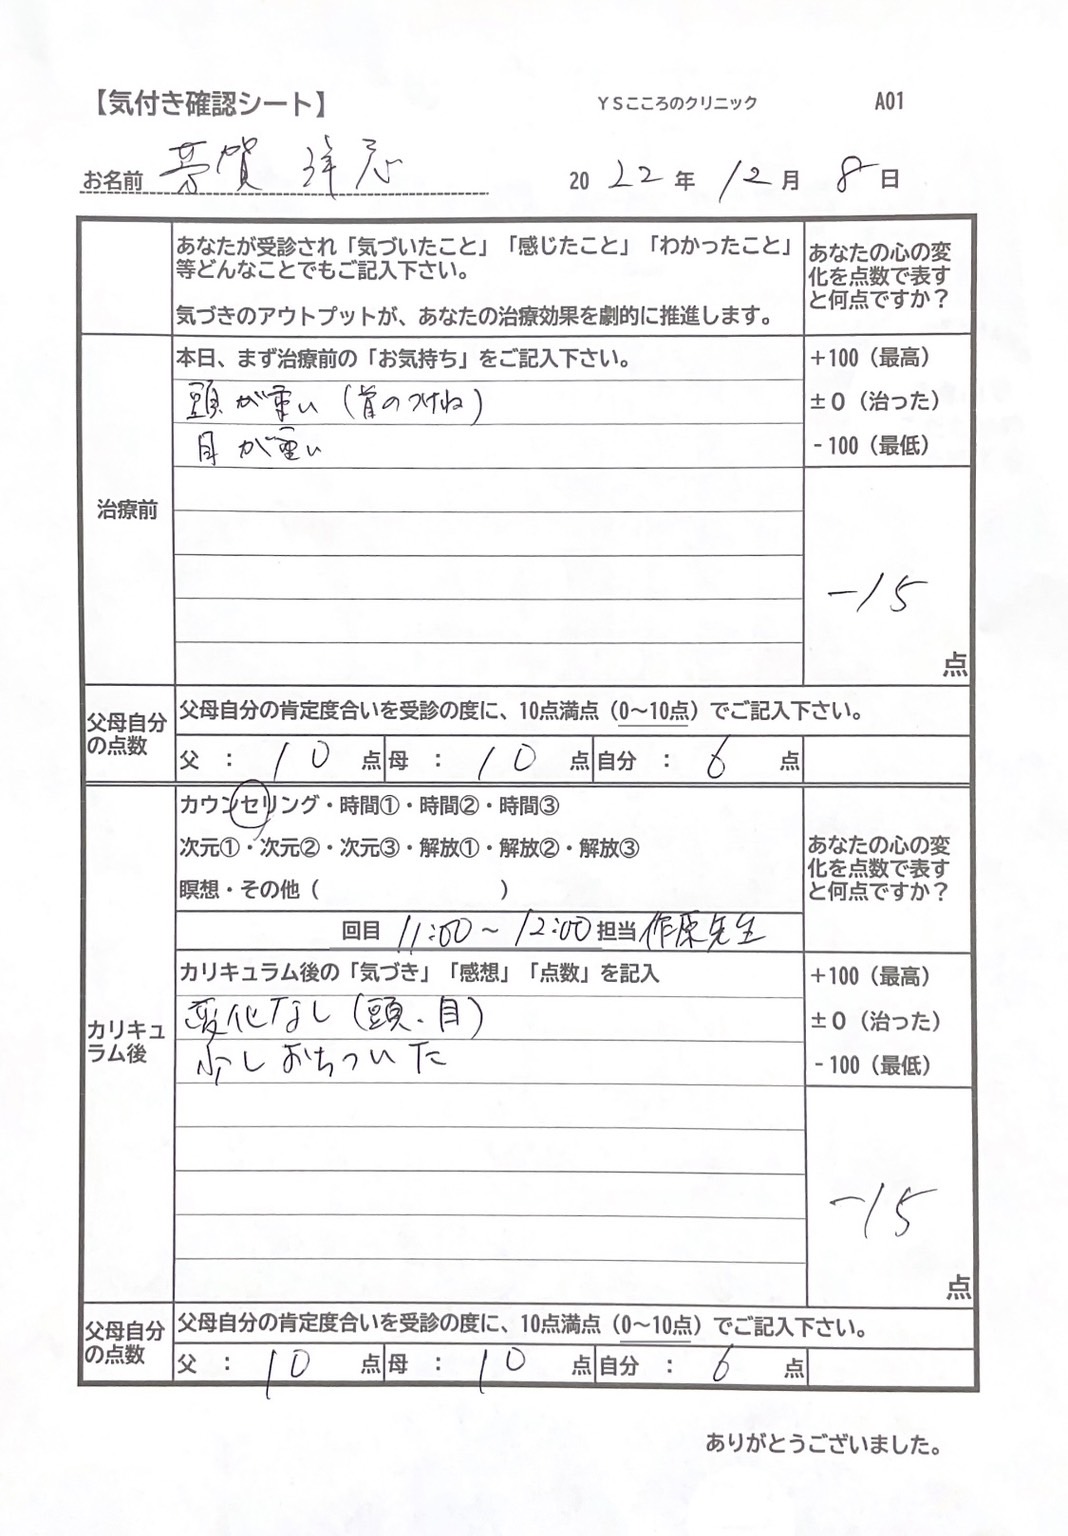 【気付き確認シート】 YSこころのクリニック A01
お名前 芳賀 洋志 2022年12月8日
あなたが受診され「気づいたこと」「感じたこと」「わかったこと」
等どんなことでもご記入下さい。
気づきのアウトプットが、あなたの治療効果を劇的に推進します。
あなたの心の変
化を点数で表す
と何点ですか?
治療前
本日、まず治療前の「お気持ち」をご記入下さい。
頭が重い(首のつけね)
目が重い
+100(最高)
±0(治った)
-100(最低)
-15
点
父母自分
の点数
父母自分の肯定度合いを受診の度に、10点満点(0〜10点)でご記入下さい。
父 : 10 点 母 : 10 点 自分 : 6 点
カリキュ
ラム後
カウンセリング・時間①・時間②・時間③
次元①・次元②・次元③・解放①・解放②・解放③
瞑想・その他( )
回目 11:00〜12:00 担当 作原先生
あなたの心の変
化を点数で表す
と何点ですか?
カリキュラム後の「気づき」「感想」「点数」を記入
変化なし(頭、目)
少しおちついた
+100(最高)
±0(治った)
-100(最低)
-15
点
父母自分
の点数
父母自分の肯定度合いを受診の度に、10点満点(0〜10点)でご記入下さい。
父 : 10 点 母 : 10 点 自分 : 6 点
ありがとうございました。